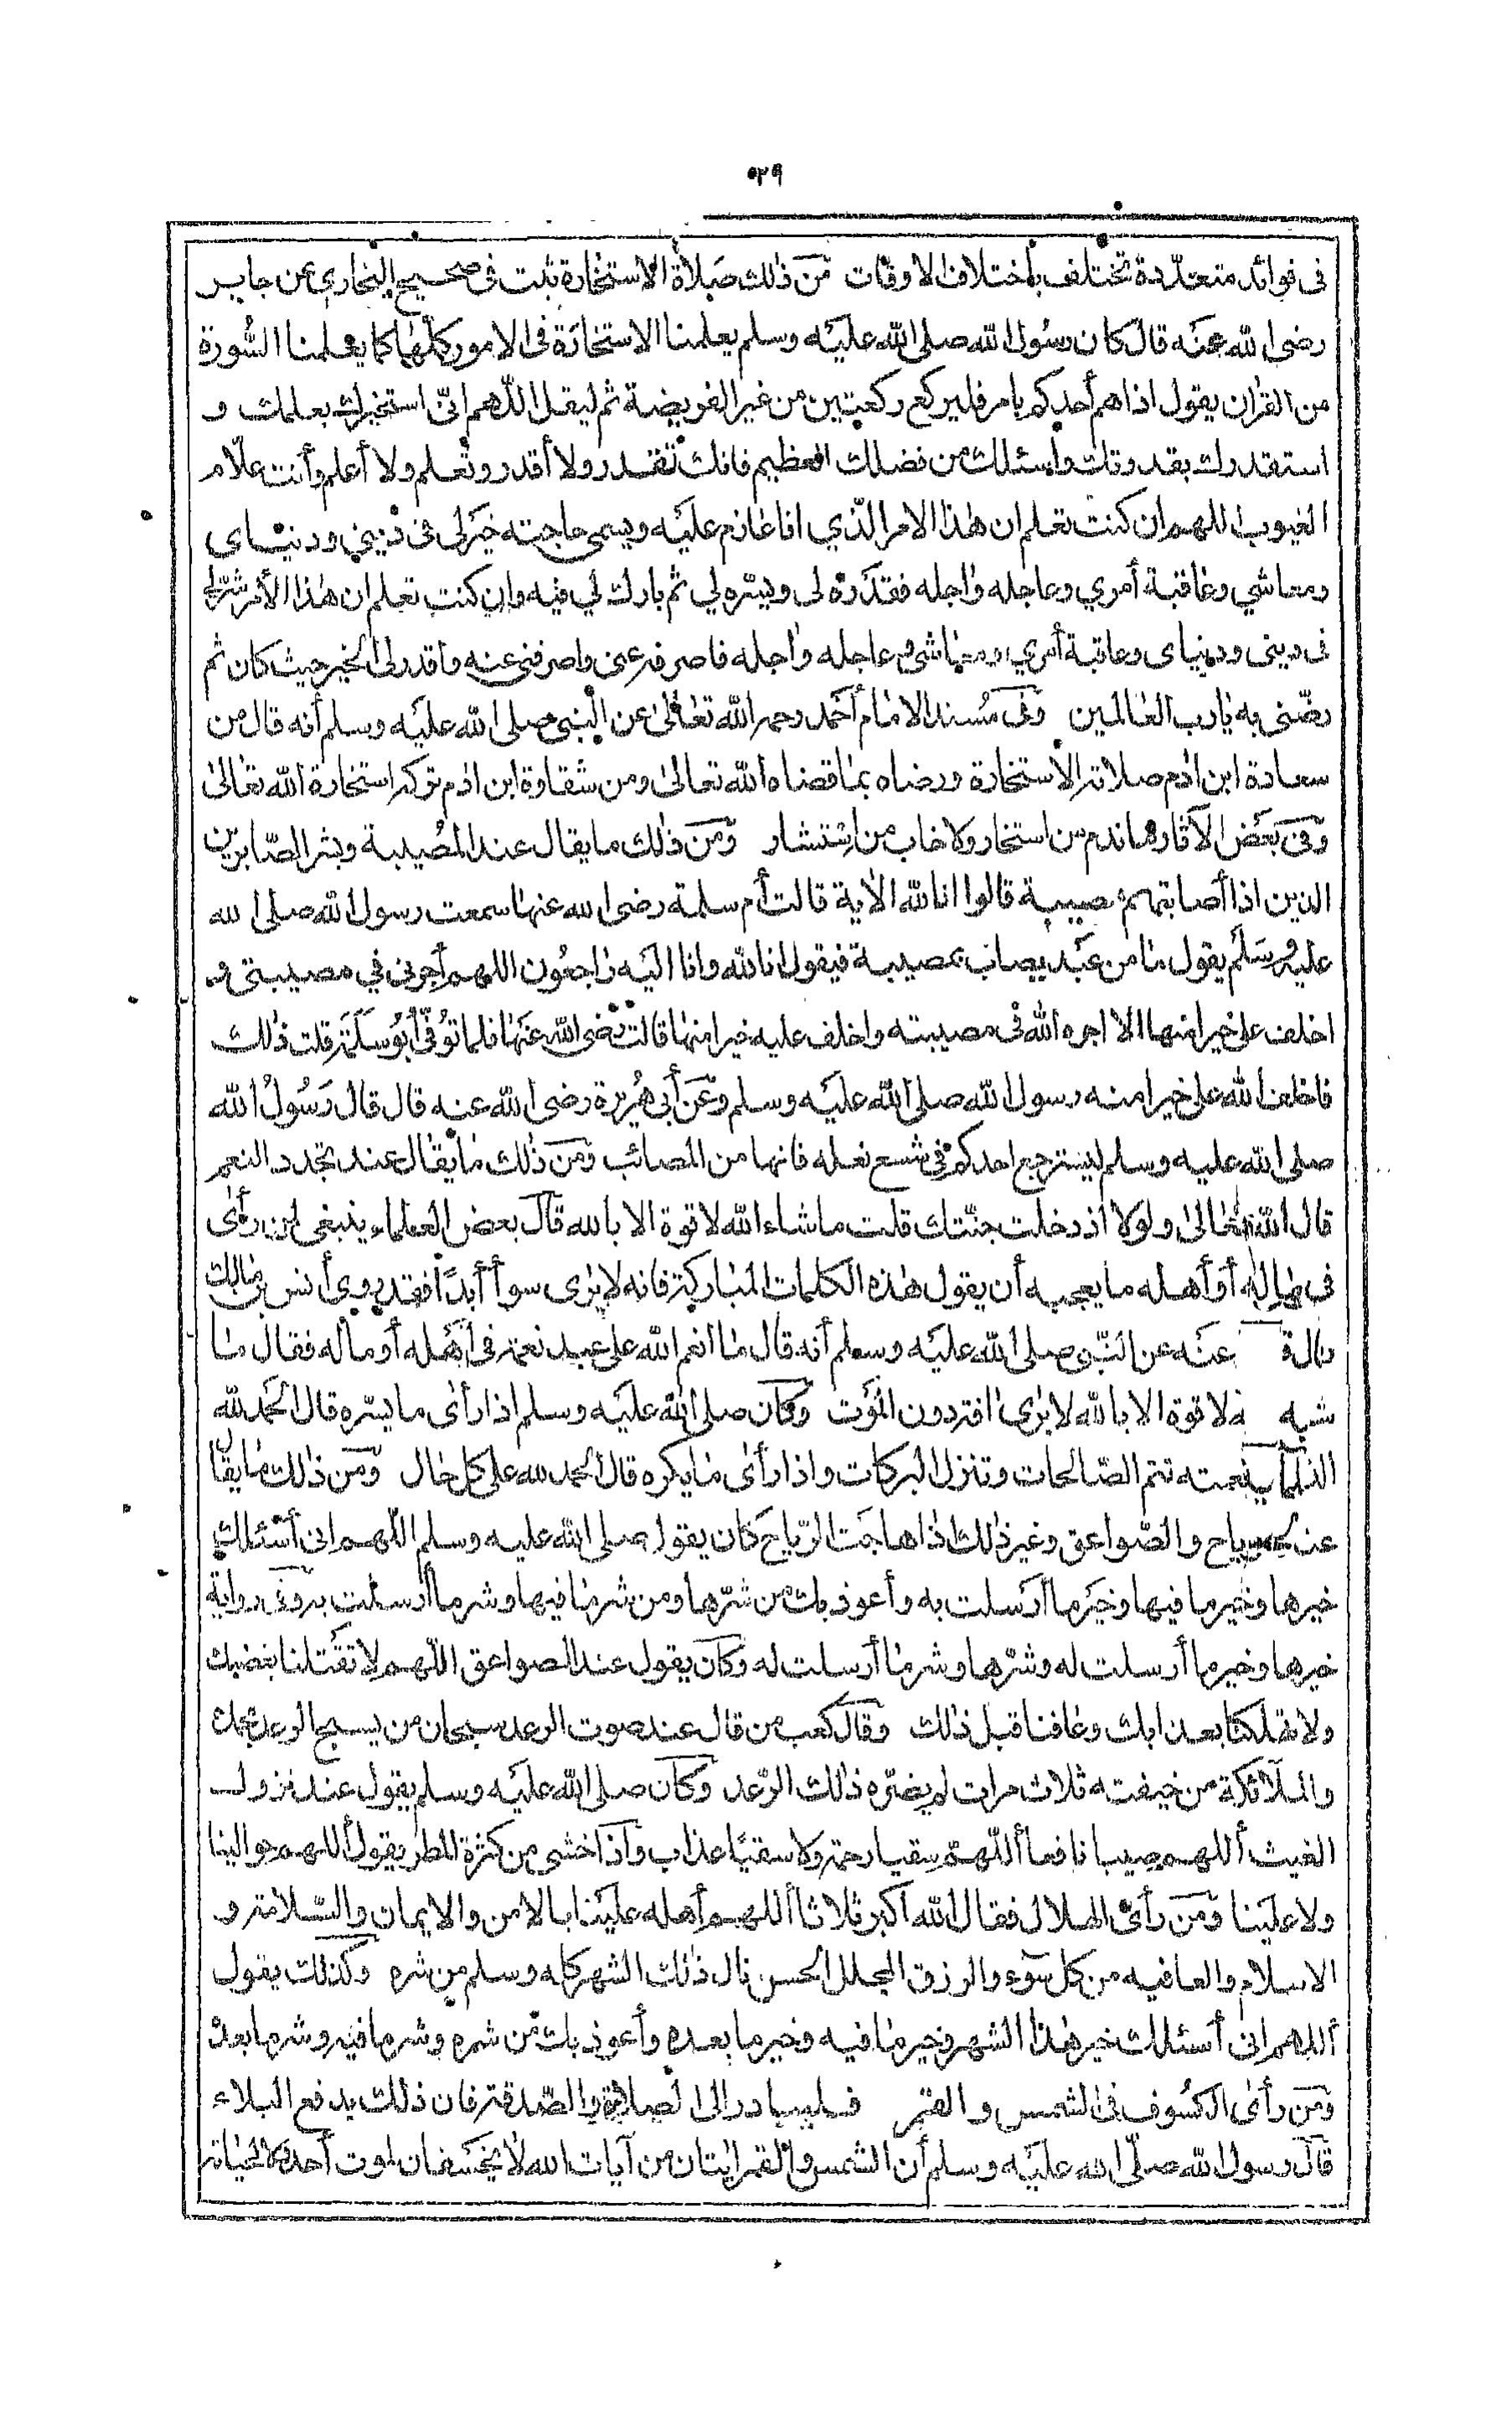 ٥٣٩
فى فوائد متعدّدة تختلف بأختلاف الاوقات ومن ذلك صَلاة الاستخارة ثبت فى صحيح البخاري عن جابر
رضى الله عنه قال كان رسُول الله صلى الله عليه وسلم يعلمنا الاستخارَة فى الامور كلّها كما يعلمنا السُّورة
من القرٰان يقول اذا هم أحدكم بامر فليركع ركعتين من غير الفريضة ثم ليقل اللّهم انّى استخيرك بعلمك و
استقدرك بقدرتك واسئلك من فضلك العظيم فانك تقدر ولا أقدر وتعلم ولا أعلم وأنت علّام
الغيوب اللهم ان كنت تعلم ان هٰذا الامر الّذي انا عازم عليه ويسمى حاجته خيَرلى فى دينى ودنياى
ومعاشي وعاقبة أمري وعاجله واٰجله فقدّره لى ويسّره لي ثم بارك لي فيه وان كنت تعلم ان هٰذا الأمر شرّلي
فى دينى ودنياى وعاقبة أمري ومعاشى وعاجله واٰجله فاصرفه عنى واصرفنى عنه واقدرلى الخير حيث كان ثم
رضّنى به يا رب العالمين وفى مُسند الامام أحمد رحمه الله تعالىٰ عن النبى صلى الله عليه وسلم أنه قال من
سعادة ابن اٰدم صلاته الاستخارة ورضاه بما قضاه الله تعالىٰ ومن شقاوة ابن اٰدم تركه استخارة الله تعالىٰ
وفى بعَض الآثار ما ندم من استخار ولا خاب من استشار ومن ذٰلك ما يقال عند المصُيبة وبشر الصّابرين
الذين اذا أصابتهم مصيبة قالوا انا لله الاٰية قالت أم سلمة رضى الله عنها سمعت رسول الله صلى الله
عليه وسَلم يقول ما من عبَد يصاب بمصيبة فيقول انا لله وانا اليَه راجعُون اللهم أجرنى في مصيبتى و
اخلف على خيرا منها الا اجره الله فى مصيبته واخلف عليه خيرا منها قالت رضى الله عَنها فلما توُفّى أبُو سَلَمَة قلت ذٰلك
فاخلف الله على خيرا منه رسول الله صلى الله عليَه وسلم وعَن أبى هُريرة رضى الله عنه قال قال رَسُولُ الله
صلى الله عليه وسلم ليسترجع احدكم فى شسع نعله فانها من المصائب ومن ذٰلك ما يقال عند تجدد النعم
قال الله تعالىٰ ولولا اذ دخلت جنّتك قلت ما شاء الله لا قوة الا بالله قال بعض العلماء ينبغى لمن رأى
فى ماله أو أهله ما يعجبه أن يقول هٰذه الكلمات المباركة فانه لا يرٰى سوأ أبدًا فقد روى أنس بن مالك
عنَه عن النّبى صلى الله عليَه وسلم أنه قال ما انعم الله على عبد نعمة فى أهَله أو ماله فقال ما
لا قوة الا بالله لا يرٰى اٰفة دون المؤت وكان صلى الله عليَه وسلم اذا رأى ما يسّره قال الحَمد لله
الذى بنعمته تتم الصّالحات وتنزل البركات واذا رأى ما يكره قال الحمد لله على كل حال ومن ذٰلك ما يقال
عند الرياح والصّواعق وغير ذٰلك اذا هاجت الرّياح كان يقول صلى الله عليه وسلم اللّهم انى أسئلك
خيرها وخير ما فيها وخيَر ما أرسلت به وأعوذ بك من شرّها ومن شر ما فيها وشر ما أرسلت به وفى رواية
خيرها وخير ما أرسلت له وشرّها وشر ما أرسلت له وكان يقول عند الصواعق اللّهم لا تقَتلنا بغضبك
ولا تهلكنا بعذابك وعافنا قبل ذٰلك وقال كعب من قال عند صوت الرعد سبحان من يسبح الرعد بحمده
والملآئكة من خيفته ثلاث مرات لم يضرّه ذٰلك الرّعد وكان صلى الله عليَه وسلم يقول عند نزول
الغيث أللهم صيبا نافعا أللّهمّ سقيا رحمة ولا سقيًا عذاب واذا خشى من كثرة المطر يقول أللهم حوالينا
ولا علينا ومن رأى الهلال فقال الله أكبر ثلاثا أللهم أهله عليَنا بالامن والايمان والسّلامة و
الاسلام والعافيه من كل سوء والرزق المجلل الحسن نال ذٰلك الشهر كله وسلم من شره وكذلك يقول
أللهم انى أسئلك خير هٰذا الشهر وخير ما فيه وخير ما بعده وأعوذ بك من شره وشر ما فيه وشر ما بعده
ومن رأى الكسُوف فى الشمس والقمر فليبادر الى الصلاة والصّدقة فان ذلك يدفع البلاء
قال رسول الله صلّى الله عليَه وسلم أن الشمس والقمر اٰيتان من آيات الله لا يخسفان لموت أحد ولا لحياته